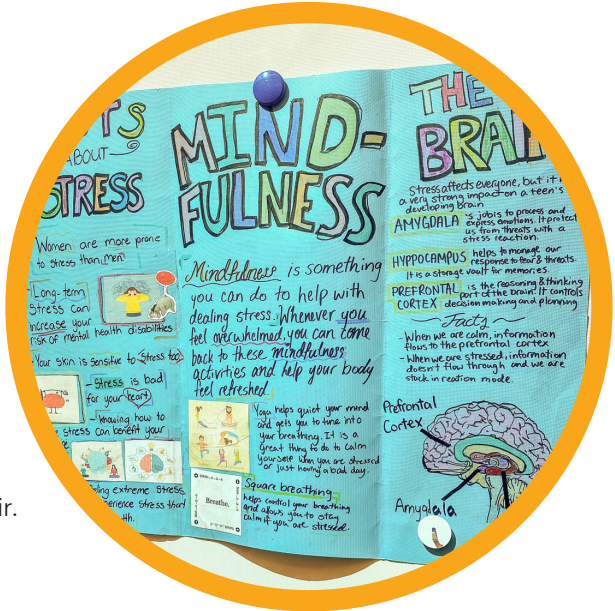 TS
ABOUT
STRESS
Women are more prone
to stress than men
Long-term
Stress can
increase your
risk of mental health disabilities
Your skin is sensitive to stress too
-Stress is bad
for your heart
-knowing how to
stress can benefit your
extreme stress
stress than
th.
ir.
MIND-
FULNESS
Mindfulness is something
you can do to help with
dealing stress. Whenever you
feel overwhelmed, you can come
back to these mindfulness
activities and help your body
feel refreshed.
Yoga helps quiet your mind
and gets you to tune into
your breathing. It is a
great thing to do to calm
yourself when you are stressed
or just having a bad day.
Breathe.
Square breathing
helps control your breathing
and allows you to stay
calm if you are stressed.
THE
BRAI
Stress affects everyone, but it
a very strong impact on a teen's
developing brain
AMYGDALA 's job is to process and
express emotions. It protect
us from threats with a
stress reaction.
HIPPOCAMPUS helps to manage our
response to fear & threats.
It is a storage vault for memories.
PREFRONTAL is the reasoning & thinking
part of the brain. It controls
CORTEX decision making and planning
Facts
- When we are calm, information
flows to the prefrontal cortex
- When we are stressed, information
doesn't flow through and we are
stuck in reation mode.
Prefrontal
Cortex
Amygdala